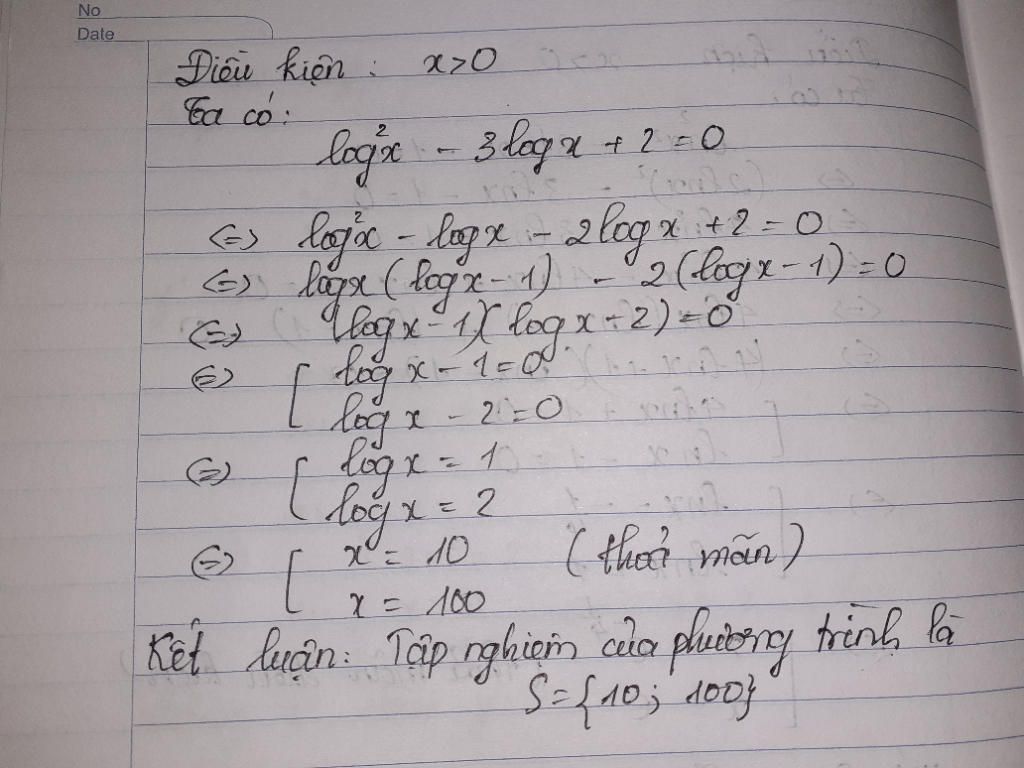 No
Date
Điều kiện: x>0
Ta có:
log²x - 3logx + 2 = 0
<=> log²x - logx - 2logx + 2 = 0
<=> logx(logx - 1) - 2(logx - 1) = 0
<=> (logx - 1)(logx - 2) = 0
<=> [ logx - 1 = 0
logx - 2 = 0
<=> [ logx = 1
logx = 2
<=> [ x = 10 (thoả mãn)
x = 100
Kết luận: Tập nghiệm của phương trình là
S = {10; 100}